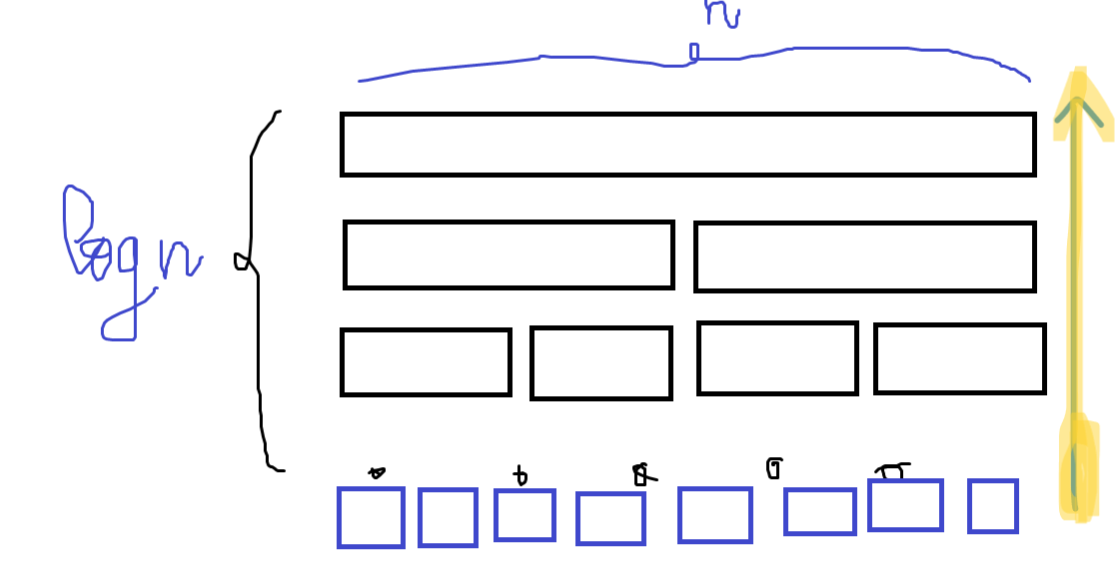 n
log n